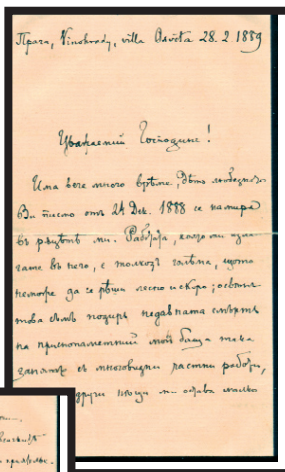 Прага, Vinohrady, villa Osvěta 28. 2. 1889
Уважаемий Господине!
Има вече много врѣме, дѣто любезно-
Ви писмо отъ 24 Дек. 1888 се намира
въ рѫцѣтѣ ми. Работата, която ми
гате въ него, е толкозъ голѣма, щото
неможе да се рѣши лесно и скоро; освѣнъ
това съмъ подиръ недавната смърть
на приснопаметний мой баща тъка
занятъ съ многовидни частни работи,
други ми остава малко